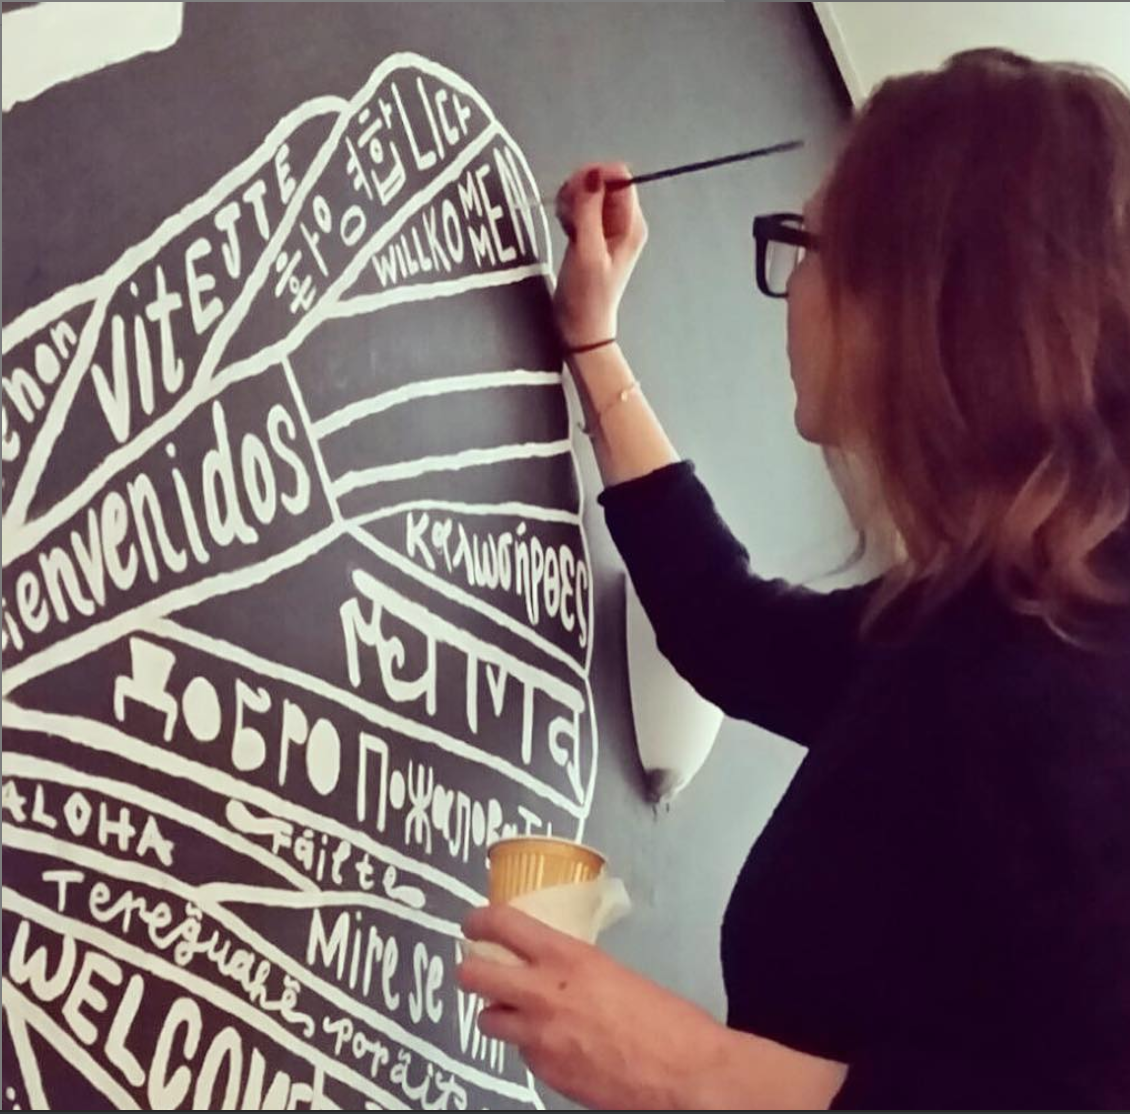 환영합니다
VitEJTE
WILLKOMMEN
ienvenidos
καλωσήρθες
स्वागत
ДОБРО Пожаловат
ALOHA
Fáilte
Tereg̃uahẽ porãite
Mire se vini
WELCOME